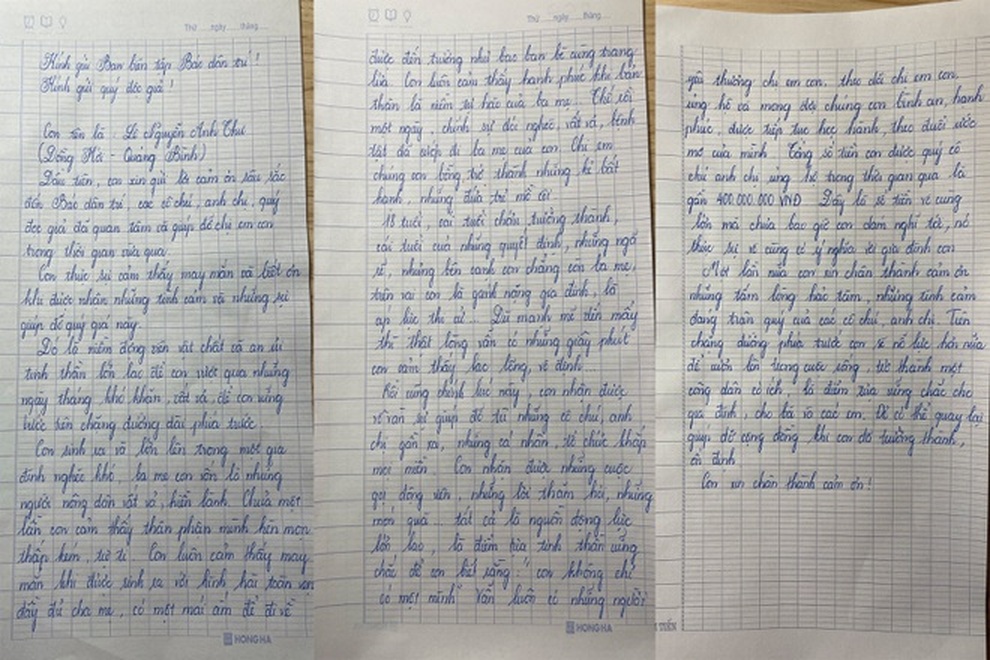 Thứ ......ngày ......tháng......
Kính gửi Ban biên tập Báo dân trí !
Kính gửi quý độc giả !
Con tên là : Lê Nguyễn Anh Thư
(Đồng Hới - Quảng Bình)
Đầu tiên, con xin gửi lời cảm ơn sâu sắc
đến Báo dân trí, các cô chú, anh chị, quý
độc giả đã quan tâm và giúp đỡ chị em con
trong thời gian vừa qua.
Con thực sự cảm thấy may mắn và biết ơn
khi được nhận những tình cảm và những sự
giúp đỡ quý giá này.
Đó là niềm động viên vật chất và an ủi
tinh thần lớn lao để con vượt qua những
ngày tháng khó khăn, vất vả, để con vững
bước trên chặng đường dài phía trước.
Con sinh ra và lớn lên trong một gia
đình nghèo khó, ba mẹ con vốn là những
người nông dân vất vả, hiền lành. Chưa một
lần con cảm thấy thân phận mình hèn mọn,
thấp kém, tự ti. Con luôn cảm thấy may
mắn khi được sinh ra với hình hài toàn vẹn
đầy đủ cha mẹ, có một mái ấm để đi về
HONGHA
Thứ ......ngày ......tháng......
được đến trường như bao bạn bè cùng trang
lứa. Con luôn cảm thấy hạnh phúc khi bản
thân là niềm tự hào của ba mẹ... Thế rồi
một ngày, chính sự đói nghèo, vất vả, bệnh
tật đã cướp đi ba mẹ của con. Chị em
chúng con bỗng trở thành những kẻ bất
hạnh, những đứa trẻ mồ côi.
18 tuổi, cái tuổi chớm trưởng thành,
cái tuổi của những quyết định, những ngã
rẽ, nhưng bên cạnh con chẳng còn ba mẹ,
trên vai con là gánh nặng gia đình, là
áp lực thi cử... Dù mạnh mẽ đến mấy
thì thật lòng vẫn có những giây phút
con cảm thấy lạc lõng, vô định...
Rồi cũng chính lúc này, con nhận được
vô vàn sự giúp đỡ từ những cô chú, anh
chị gần xa, những cá nhân, tổ chức khắp
mọi miền. Con nhận được những cuộc
gọi động viên, những lời thăm hỏi, những
món quà... tất cả là nguồn động lực
lớn lao, là điểm tựa tinh thần vững
chắc để con biết rằng: "con không chỉ
có một mình". Vẫn luôn có những người
HONGHA
yêu thương chị em con, theo dõi chị em con,
ủng hộ và mong đợi chúng con bình an, hạnh
phúc, được tiếp tục học hành, theo đuổi ước
mơ của mình. Tổng số tiền con được quý cô
chú anh chị ủng hộ trong thời gian qua là
gần 400.000.000 VNĐ. Đây là số tiền vô cùng
lớn mà chưa bao giờ con dám nghĩ tới, nó
thực sự vô cùng có ý nghĩa với gia đình con
Một lần nữa con xin chân thành cảm ơn
những tấm lòng hảo tâm, những tình cảm
đáng trân quý của các cô chú, anh chị. Trên
chặng đường phía trước con sẽ nỗ lực hơn nữa
để vươn lên trong cuộc sống, trở thành một
công dân có ích, là điểm tựa vững chắc cho
gia đình, cho bà và các em. Để có thể quay lại
giúp đỡ cộng đồng khi con đã trưởng thành,
ổn định
Con xin chân thành cảm ơn!